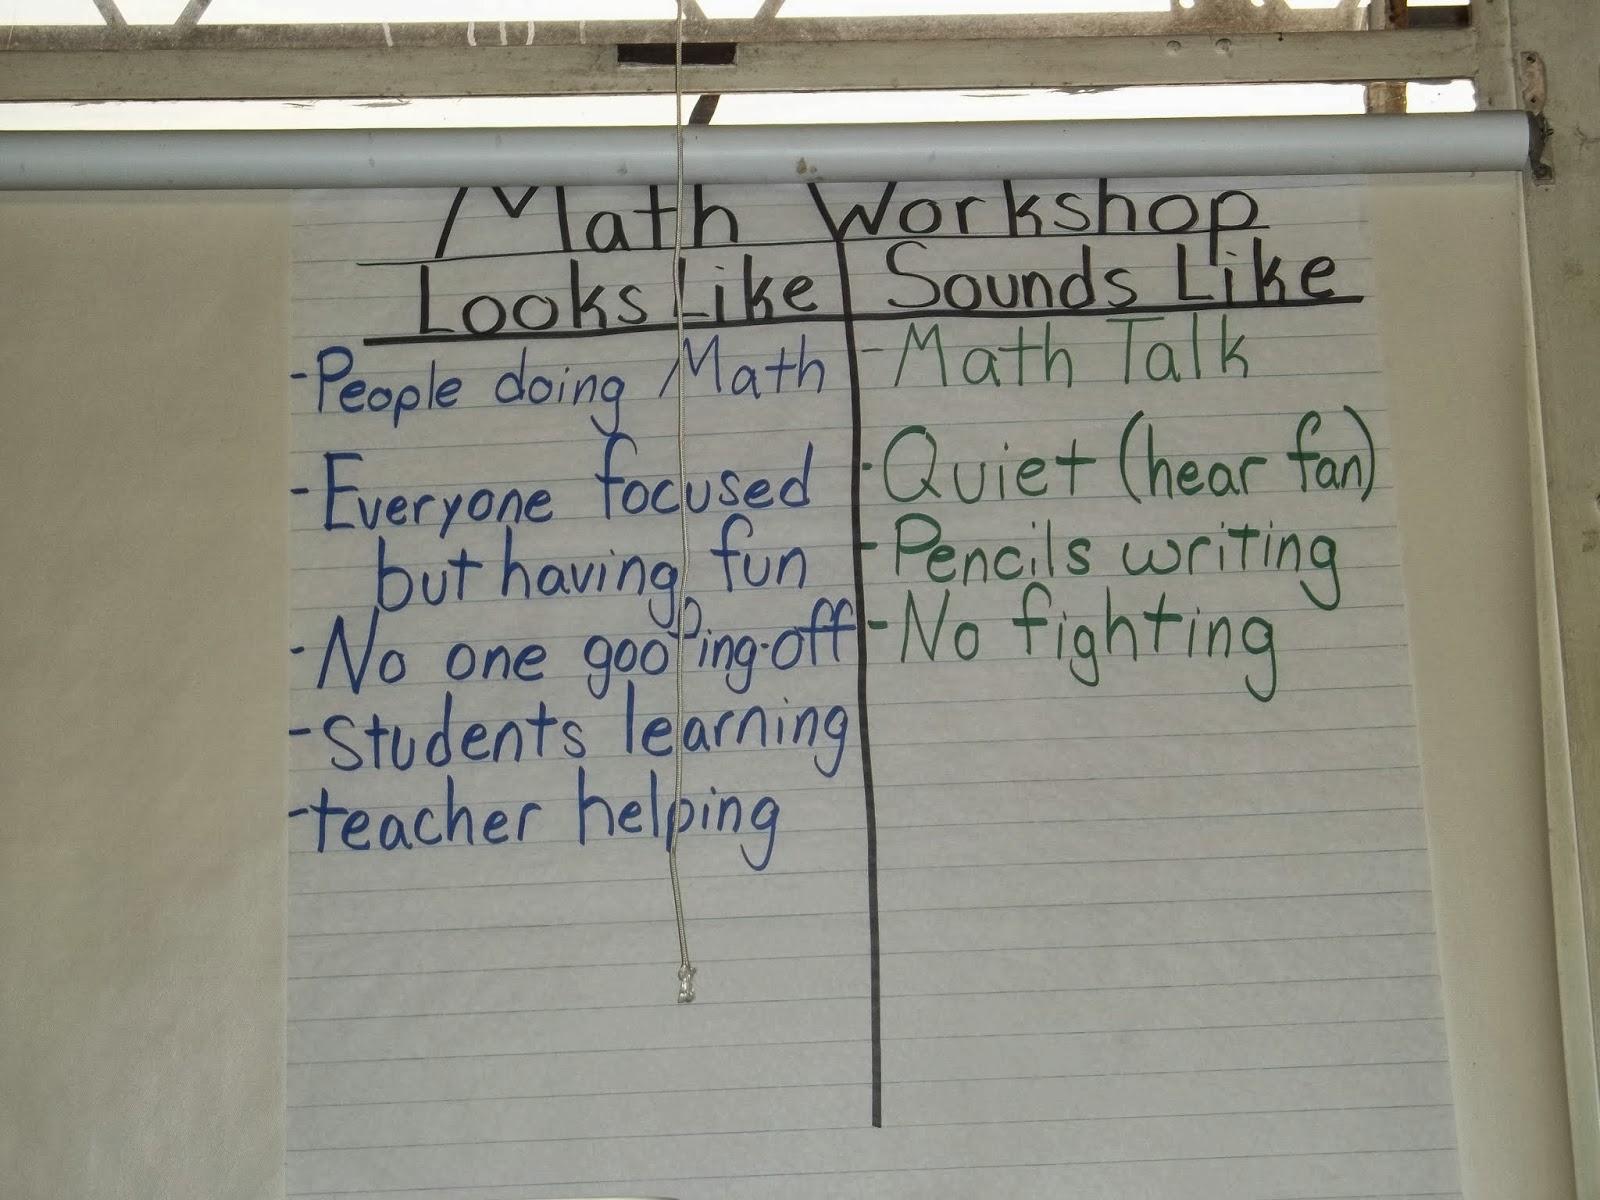 Math Workshop
Looks Like
Sounds Like
-People doing Math
-Everyone focused
but having fun
-No one goofing-off
-Students learning
-teacher helping
-Math Talk
-Quiet (hear fan)
-Pencils writing
-No fighting